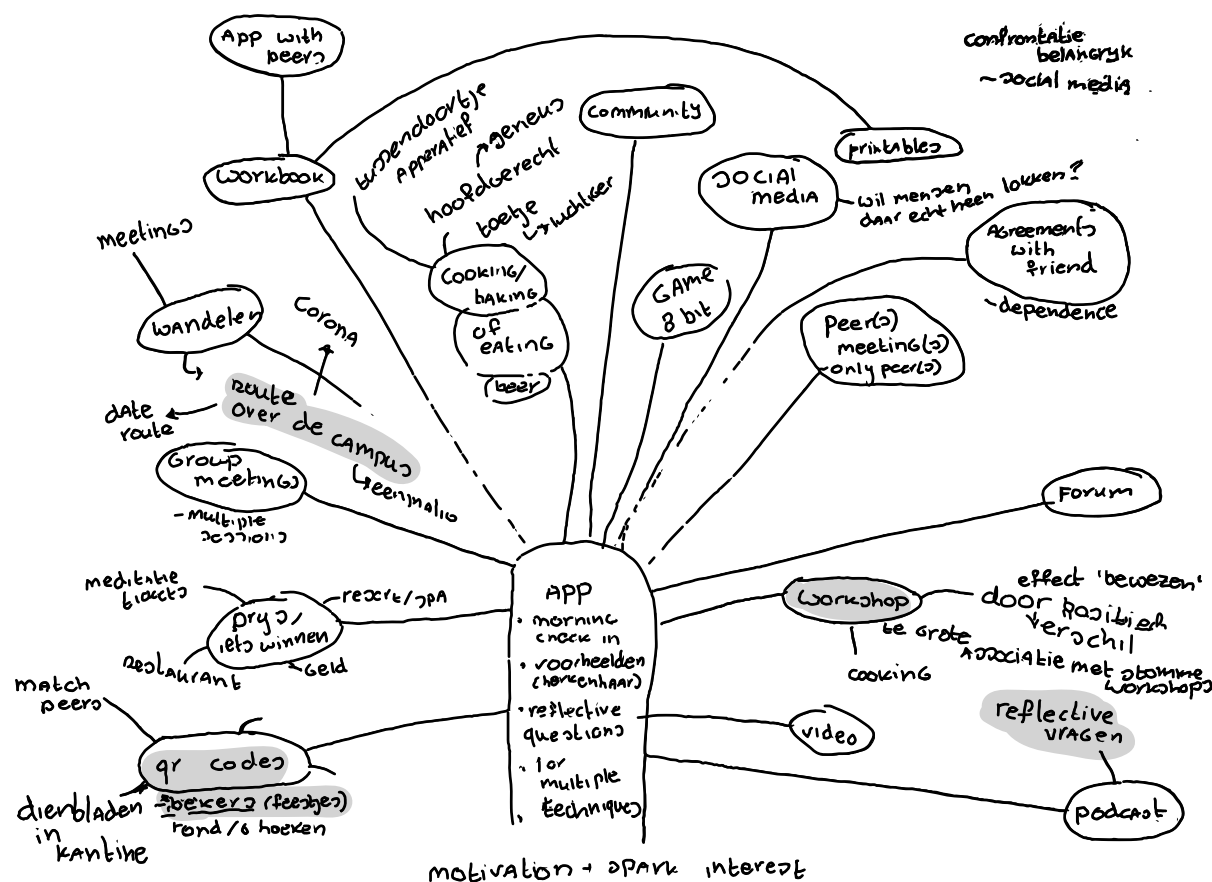 App with
peers
confrontatie
belangryk
~ social media
tussendoortje
apperatief
geneus
hoofdgerecht
toetje
luchtiger
community
printables
workbook
SOCIAL
MEDIA
wil mensen
daar echt heen lokken?
Agreements
with
friend
- dependence
meetings
wandelen
corona
cooking/
baking
of
EATING
beer
GAME
8 bit
peer(s)
meeting(s)
- only peer(s)
route
over de campus
date
route
eenmalig
Group
meetings
- multiple
sessions
Forum
meditatie
tickets
resort/spa
prys,
iets winnen
restaurant
Geld
APP
• morning
check in
• voorbeelden
(herkenbaar)
• reflective
questions
• 1 or
multiple
techniques
•
workshop
cooking
effect 'bewezen'
door positief
verschil
te grote
associatie met stomme
workshops
match
peers
qr codes
- bekers (feestjes)
rond/6 hoeken
dienbladen
in
kantine
video
reflective
vragen
podcast
motivation + spark interest